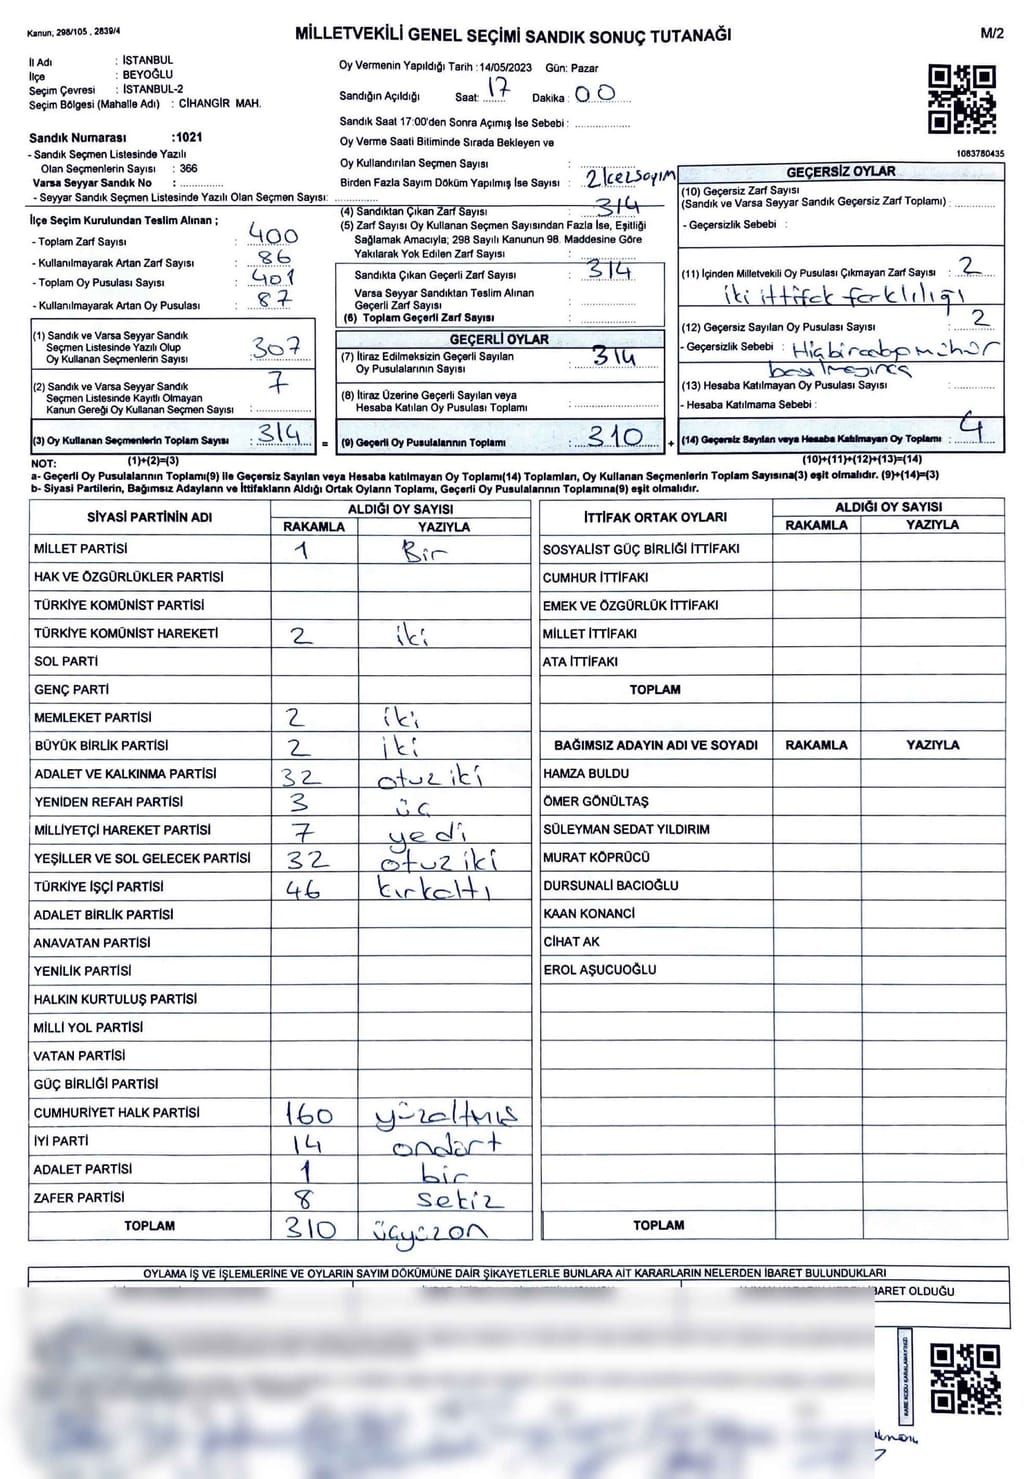 Kanun, 298/105 , 2839/4
MİLLETVEKİLİ GENEL SEÇİMİ SANDIK SONUÇ TUTANAĞI
M/2
İl Adı : İSTANBUL
İlçe : BEYOĞLU
Seçim Çevresi : İSTANBUL-2
Seçim Bölgesi (Mahalle Adı) : CİHANGİR MAH.
Sandık Numarası :1021
- Sandık Seçmen Listesinde Yazılı
Olan Seçmenlerin Sayısı : 366
Varsa Seyyar Sandık No : ............
- Seyyar Sandık Seçmen Listesinde Yazılı Olan Seçmen Sayısı: ............
Oy Vermenin Yapıldığı Tarih :14/05/2023 Gün: Pazar
Sandığın Açıldığı Saat: 17 Dakika : 00
Sandık Saat 17:00'den Sonra Açımış İse Sebebi : ............
Oy Verme Saati Bitiminde Sırada Bekleyen ve
Oy Kullandırılan Seçmen Sayısı : ............
Birden Fazla Sayım Döküm Yapılmış İse Sayısı : 2 kez sayım
1083780435
İlçe Seçim Kurulundan Teslim Alınan ;
- Toplam Zarf Sayısı : 400
- Kullanılmayarak Artan Zarf Sayısı : 86
- Toplam Oy Pusulası Sayısı : 401
- Kullanılmayarak Artan Oy Pusulası : 87
(1) Sandık ve Varsa Seyyar Sandık
Seçmen Listesinde Yazılı Olup
Oy Kullanan Seçmenlerin Sayısı : 307
(2) Sandık ve Varsa Seyyar Sandık
Seçmen Listesinde Kayıtlı Olmayan
Kanun Gereği Oy Kullanan Seçmen Sayısı : 7
(3) Oy Kullanan Seçmenlerin Toplam Sayısı : 314 =
(4) Sandıktan Çıkan Zarf Sayısı : 314
(5) Zarf Sayısı Oy Kullanan Seçmen Sayısından Fazla İse, Eşitliği
Sağlamak Amacıyla; 298 Sayılı Kanunun 98. Maddesine Göre
Yakılarak Yok Edilen Zarf Sayısı : ............
Sandıkta Çıkan Geçerli Zarf Sayısı : 314
Varsa Seyyar Sandıktan Teslim Alınan
Geçerli Zarf Sayısı : ............
(6) Toplam Geçerli Zarf Sayısı : ............
GEÇERLİ OYLAR
(7) İtiraz Edilmeksizin Geçerli Sayılan
Oy Pusulalarının Sayısı : 314
(8) İtiraz Üzerine Geçerli Sayılan veya
Hesaba Katılan Oy Pusulası Toplamı : ............
(9) Geçerli Oy Pusulalarının Toplamı : 310 +
GEÇERSİZ OYLAR
(10) Geçersiz Zarf Sayısı
(Sandık ve Varsa Seyyar Sandık Geçersiz Zarf Toplamı) : ............
- Geçersizlik Sebebi :
(11) İçinden Milletvekili Oy Pusulası Çıkmayan Zarf Sayısı : 2
iki ittifak farklılığı
(12) Geçersiz Sayılan Oy Pusulası Sayısı : 2
- Geçersizlik Sebebi :
(13) Hesaba Katılmayan Oy Pusulası Sayısı : ............
- Hesaba Katılmama Sebebi :
(14) Geçersiz Sayılan veya Hesaba Katılmayan Oy Toplamı : 4
NOT: (1)+(2)=(3)
(10)+(11)+(12)+(13)=(14)
a- Geçerli Oy Pusulalarının Toplamı(9) ile Geçersiz Sayılan veya Hesaba katılmayan Oy Toplamı(14) Toplamları, Oy Kullanan Seçmenlerin Toplam Sayısına(3) eşit olmalıdır. (9)+(14)=(3)
b- Siyasi Partilerin, Bağımsız Adayların ve İttifakların Aldığı Ortak Oyların Toplamı, Geçerli Oy Pusulalarının Toplamına(9) eşit olmalıdır.
SİYASİ PARTİNİN ADI ALDIĞI OY SAYISI
RAKAMLA YAZIYLA
MİLLET PARTİSİ 1 Bir
HAK VE ÖZGÜRLÜKLER PARTİSİ
TÜRKİYE KOMÜNİST PARTİSİ
TÜRKİYE KOMÜNİST HAREKETİ 2 iki
SOL PARTİ
GENÇ PARTİ
MEMLEKET PARTİSİ 2 iki
BÜYÜK BİRLİK PARTİSİ 2 iki
ADALET VE KALKINMA PARTİSİ 32 otuz iki
YENİDEN REFAH PARTİSİ 3 üç
MİLLİYETÇİ HAREKET PARTİSİ 7 yedi
YEŞİLLER VE SOL GELECEK PARTİSİ 32 otuz iki
TÜRKİYE İŞÇİ PARTİSİ 46 kırkaltı
ADALET BİRLİK PARTİSİ
ANAVATAN PARTİSİ
YENİLİK PARTİSİ
HALKIN KURTULUŞ PARTİSİ
MİLLİ YOL PARTİSİ
VATAN PARTİSİ
GÜÇ BİRLİĞİ PARTİSİ
CUMHURİYET HALK PARTİSİ 160 yüzaltmış
İYİ PARTİ 14 ondört
ADALET PARTİSİ 1 bir
ZAFER PARTİSİ 8 sekiz
TOPLAM 310 üçyüzon
İTTİFAK ORTAK OYLARI ALDIĞI OY SAYISI
RAKAMLA YAZIYLA
SOSYALİST GÜÇ BİRLİĞİ İTTİFAKI
CUMHUR İTTİFAKI
EMEK VE ÖZGÜRLÜK İTTİFAKI
MİLLET İTTİFAKI
ATA İTTİFAKI
TOPLAM
BAĞIMSIZ ADAYIN ADI VE SOYADI RAKAMLA YAZIYLA
HAMZA BULDU
ÖMER GÖNÜLTAŞ
SÜLEYMAN SEDAT YILDIRIM
MURAT KÖPRÜCÜ
DURSUNALİ BACIOĞLU
KAAN KONANCİ
CİHAT AK
EROL AŞUCUOĞLU
TOPLAM
OYLAMA İŞ VE İŞLEMLERİNE VE OYLARIN SAYIM DÖKÜMÜNE DAİR ŞİKAYETLERLE BUNLARA AİT KARARLARIN NELERDEN İBARET BULUNDUKLARI
BARET OLDUĞU